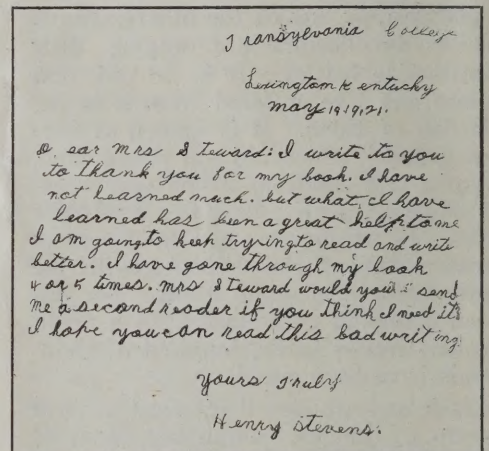 Transylvania College
Lexington Kentucky
May 19, 19,21.
Dear Mrs Steward: I write to you
to thank you for my book. I have
not learned much. but what I have
learned has been a great help to me
I am going to keep trying to read and write
better. I have gone through my book
4 or 5 times. Mrs Steward would you send
me a second reader if you think I need it?
I hope you can read this bad writing.
Yours Truly
Henry Stevens.